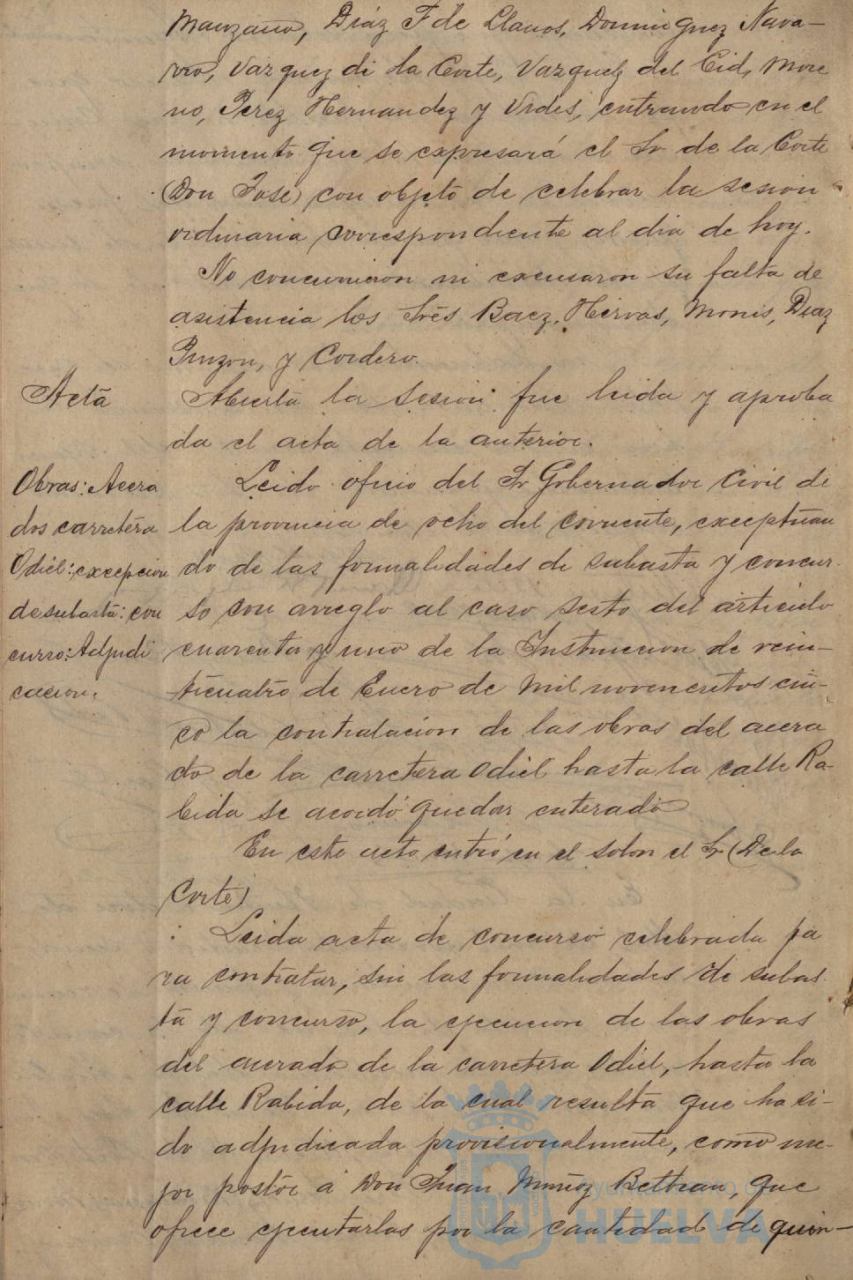 Manzano, Díaz F de Llanos, Dominguez Nava-
rro, Vazquez de la Corte, Vazquez del Cid, More
no, Perez Hernandez y Vides, entrando en el
momento que se expresará el Sr de la Corte
(Don José) con objeto de celebrar la sesion
ordinaria correspondiente al dia de hoy.
No concurrieron ni excusaron su falta de
asistencia los Sres Baez, Hervas, Monis, Diaz
Pinzon, y Cordero.
Acta
Abierta la sesion fue leida y aproba
da el acta de la anterior.
Obras: Acera
dos carretera
Odiel: excepcion
de subasta: con
curso: Adjudi
cacion.
Leido oficio del Sr Gobernador Civil de
la provincia de ocho del corriente, exceptuan
do de las formalidades de subasta y concur
so con arreglo al caso sesto del articulo
cuarenta y uno de la Instruccion de vein-
ticuatro de Enero de mil novecientos cin-
co la contratacion de las obras del acera
do de la carretera Odiel hasta la calle Ra-
bida se acordó quedar enterado
En este acto entró en el salon el Sr (De la
Corte)
Leida acta de concurso celebrada pa
ra contratar, sin las formalidades de subas
ta y concurso, la ejecucion de las obras
del acerado de la carretera Odiel, hasta la
calle Rabida, de la cual resulta que ha si-
do adjudicada provisionalmente, como me-
jor postor á Don Juan Muñoz Beltran, que
ofrece ejecutarlas por la cantidad de quin-
Ayuntamiento de
HUELVA